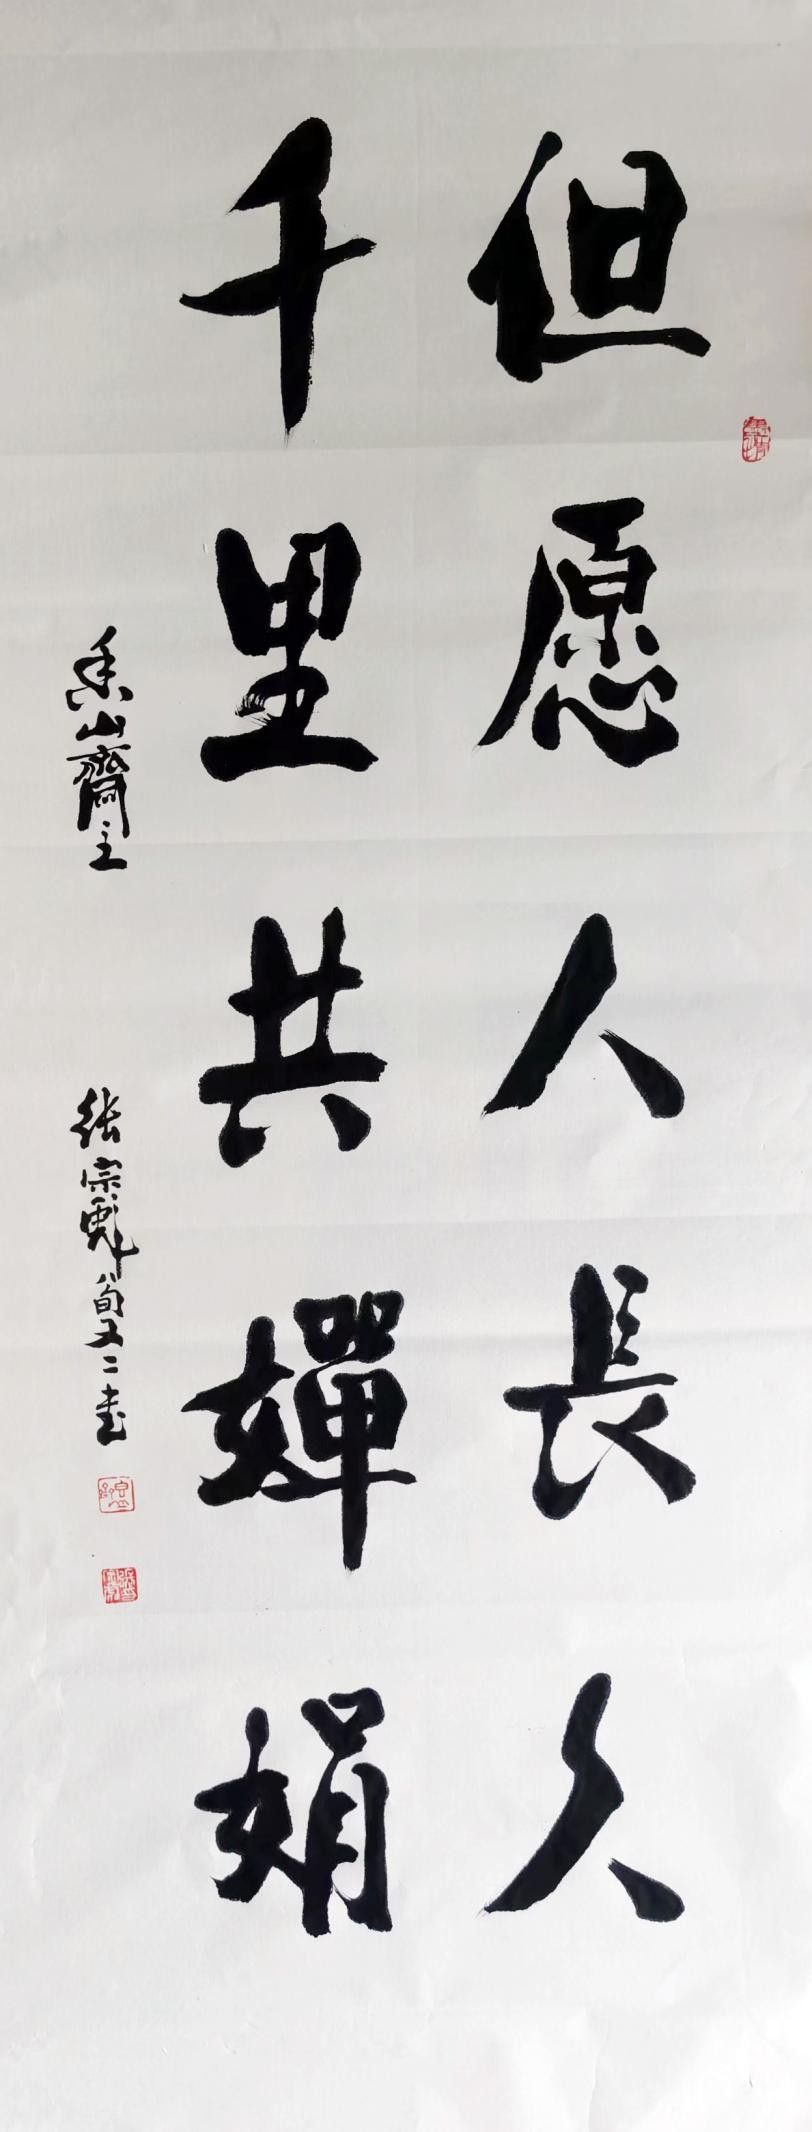 但愿人長久
千里共嬋娟
香山齋主
张宗彪八旬又二書